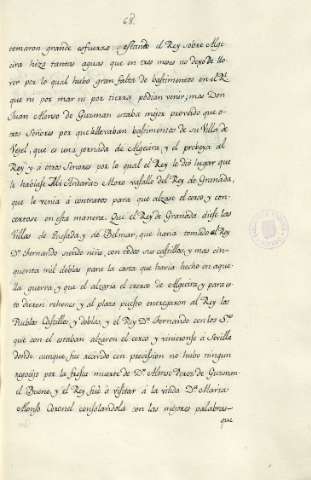 68.
tomaron grande esfuerzo y estando el Rey sobre Alge
cira hizo tantas aguas que en tres meses no dexo de llo
ver por lo qual hubo gran falta de bastimentos en el Rl.
que ni por mar ni por tierra podian venir; mas Don
Juan Alonso de Guzman estaba mejor proveido que o
tros Señores por que llevaban bastimentos de su Villa de
Vejel, que es una jornada de Algecira, y el proveya al
Rey y á otros Señores por lo qual el Rey le dió lugar que
le hablase Moro vasallo del Rey de Granada,
que le venia á contratos para que alzase el cerco y con
certose en esta manera. Que el Rey de Granada diese las
Villas de Quesada, y de Belmar, que havia tomado al Rey
Dn. Fernando siendo niño, con todos sus castillos, y mas cin
quenta mil doblas para la costa que havia hecho en aque
lla guerra, y que el alzaria el cerco de Algecira y para es
to dieron rehenes y al plazo puesto entregaron al Rey los
Pueblos Castillos y doblas, y el Rey Dn. Fernando con los Ses.
que con el estaban alzaron el cerco y vinieronse á Sevilla
donde aunque fue acordo con precision no hubo ningun
regocijo por la fresca muerte de Dn. Alonso Perez de Guzman
el Bueno, y el Rey fué á visitar á la viuda Da. Maria
Alonso Coronel consolandola con las mejores palabras
que